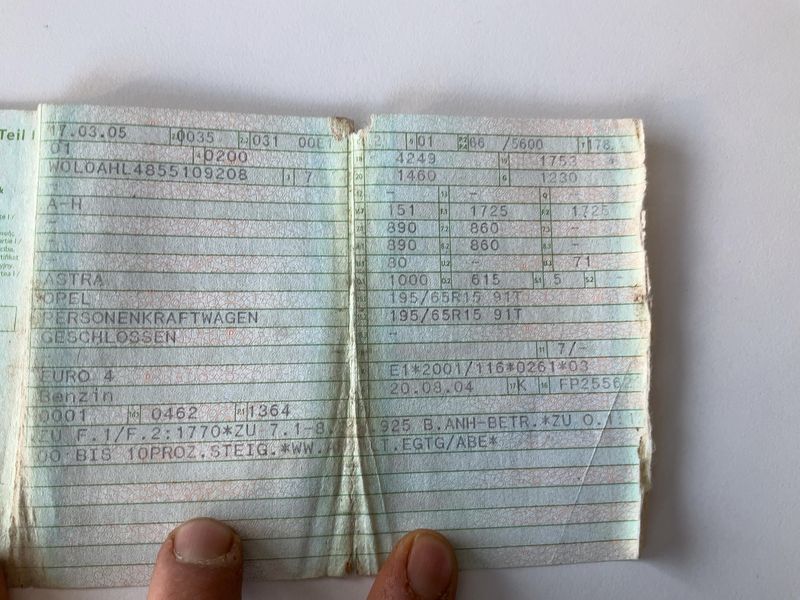 Teil I
17.03.05 0035 031 00E
2 01 66 /5600 178
01 0200
4249 1753
W0L0AHL4855109208 7
1460 1230
-
- -
A-H
151 1725 1725
-
890 860 -
-
890 860 -
80 - 71
ASTRA
1000 615 5 -
OPEL
195/65R15 91T
PERSONENKRAFTWAGEN
195/65R15 91T
GESCHLOSSEN
-
7/-
EURO 4
E1*2001/116*0261*03
Benzin
20.08.04 K FP2556
0001 0462 1364
ZU F.1/F.2:1770*ZU 7.1-8
925 B.ANH-BETR.*ZU O.1:1
00 BIS 10PROZ.STEIG.*WW.
T.EGTG/ABE*